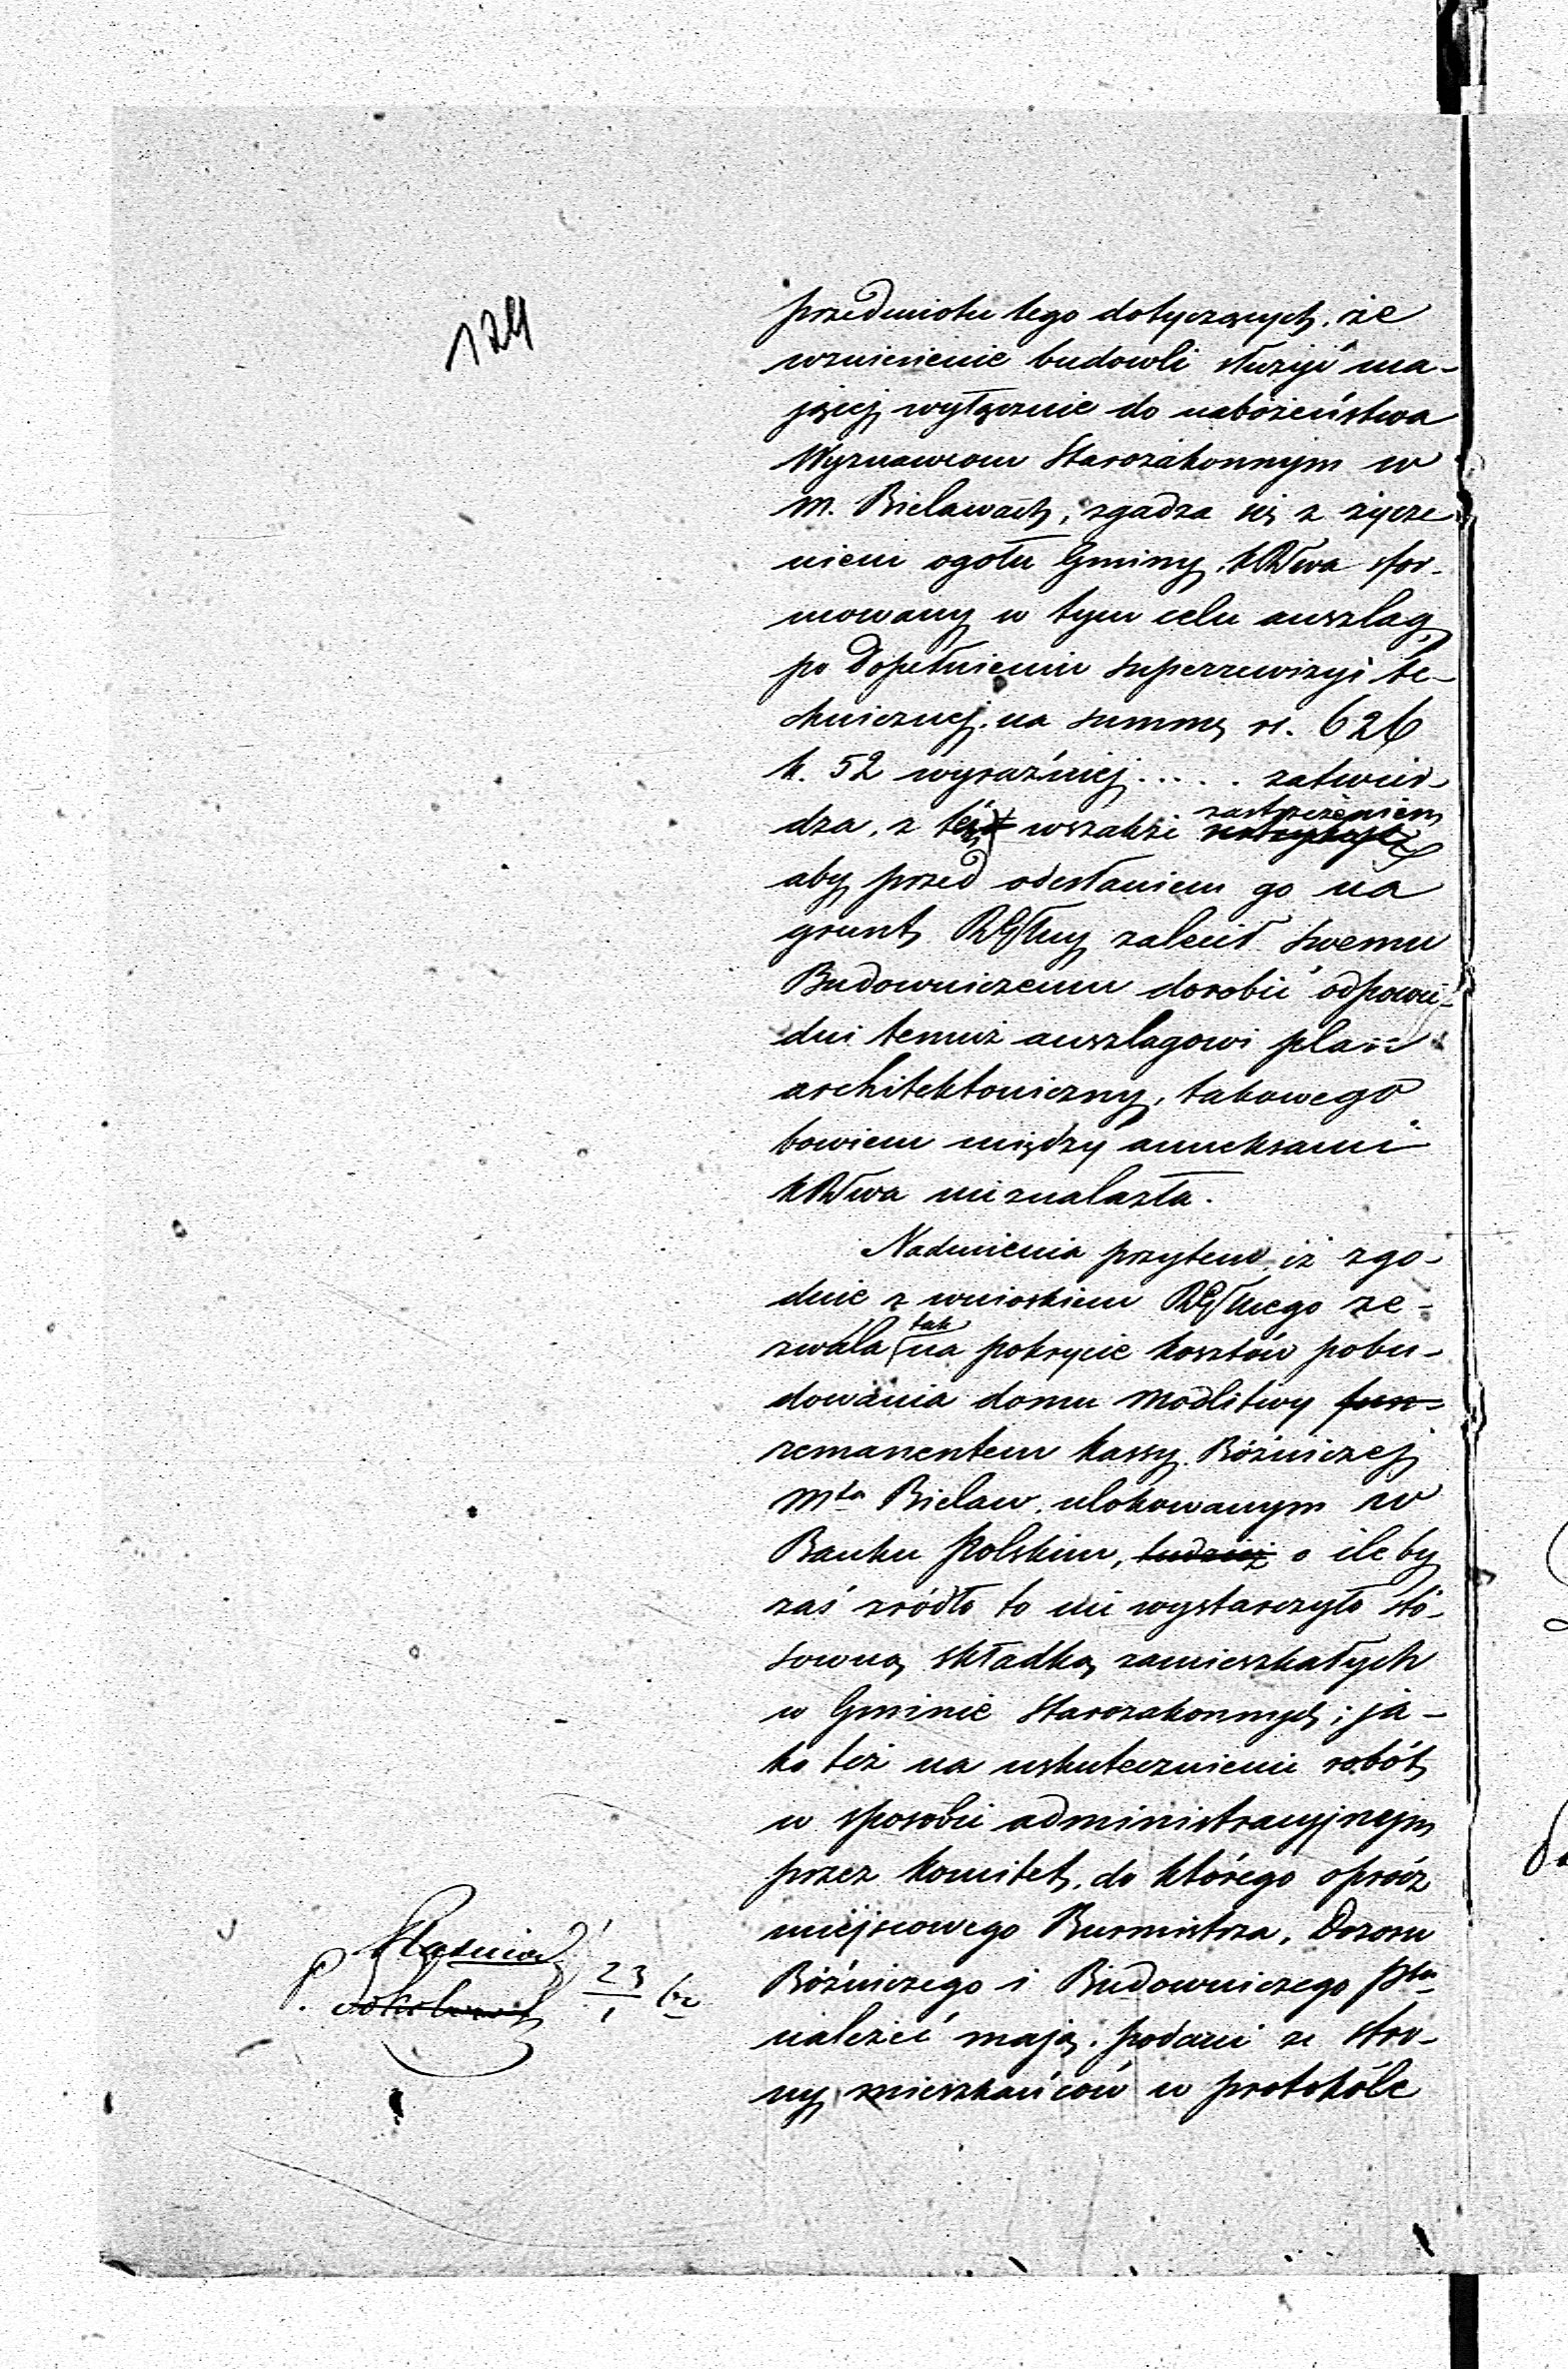 124
przedmiotu tego dotyczących, że
wzniesienie budowli służyć ma-
jącej wyłącznie do nabożeństwa
Wyznawcom Starozakonnym w
m. Bielawach, zgadza się z życze
niem ogółu Gminy, KRŁwa sfor-
mowany w tym celu anszlag
po dopełnieniu superrewizyi te-
chnicznej, na summę rs. 626
k. 52 wyraźniej..... zatwier-
dza, z tém wszakże zastrzeżeniem
aby przed odesłaniem go na
grunt RGłny zalecił swemu
Budowniczemu dorobić odpowie-
dni temuż anszlagowi plan
architektoniczny, takowego
bowiem między anneksami
KRŁwa nieznalazła.
Nadmienia przytem, iż zgo-
dnie z wnioskiem RGłnego ze-
zwala tak na pokrycie kosztów pobu-
dowania domu modlitwy
remanentem kassy Bóżniczej
mta Bielaw, ulokowanym w
Banku Polskim, tudzież o ile by
zaś zródło to nie wystarczyło sto-
sowną składką zamieszkałych
w Gminie Starozakonnych; ja-
ko też na uskutecznienie robót
w sposobie administracyjnym
przez komitet, do którego oprócz
miejscowego Burmistrza, Dozoru
Bóżniczego i Budowniczego Ptu
należeć mają, podani ze stro-
ny mieszkańców w protokóle
P.
23
1